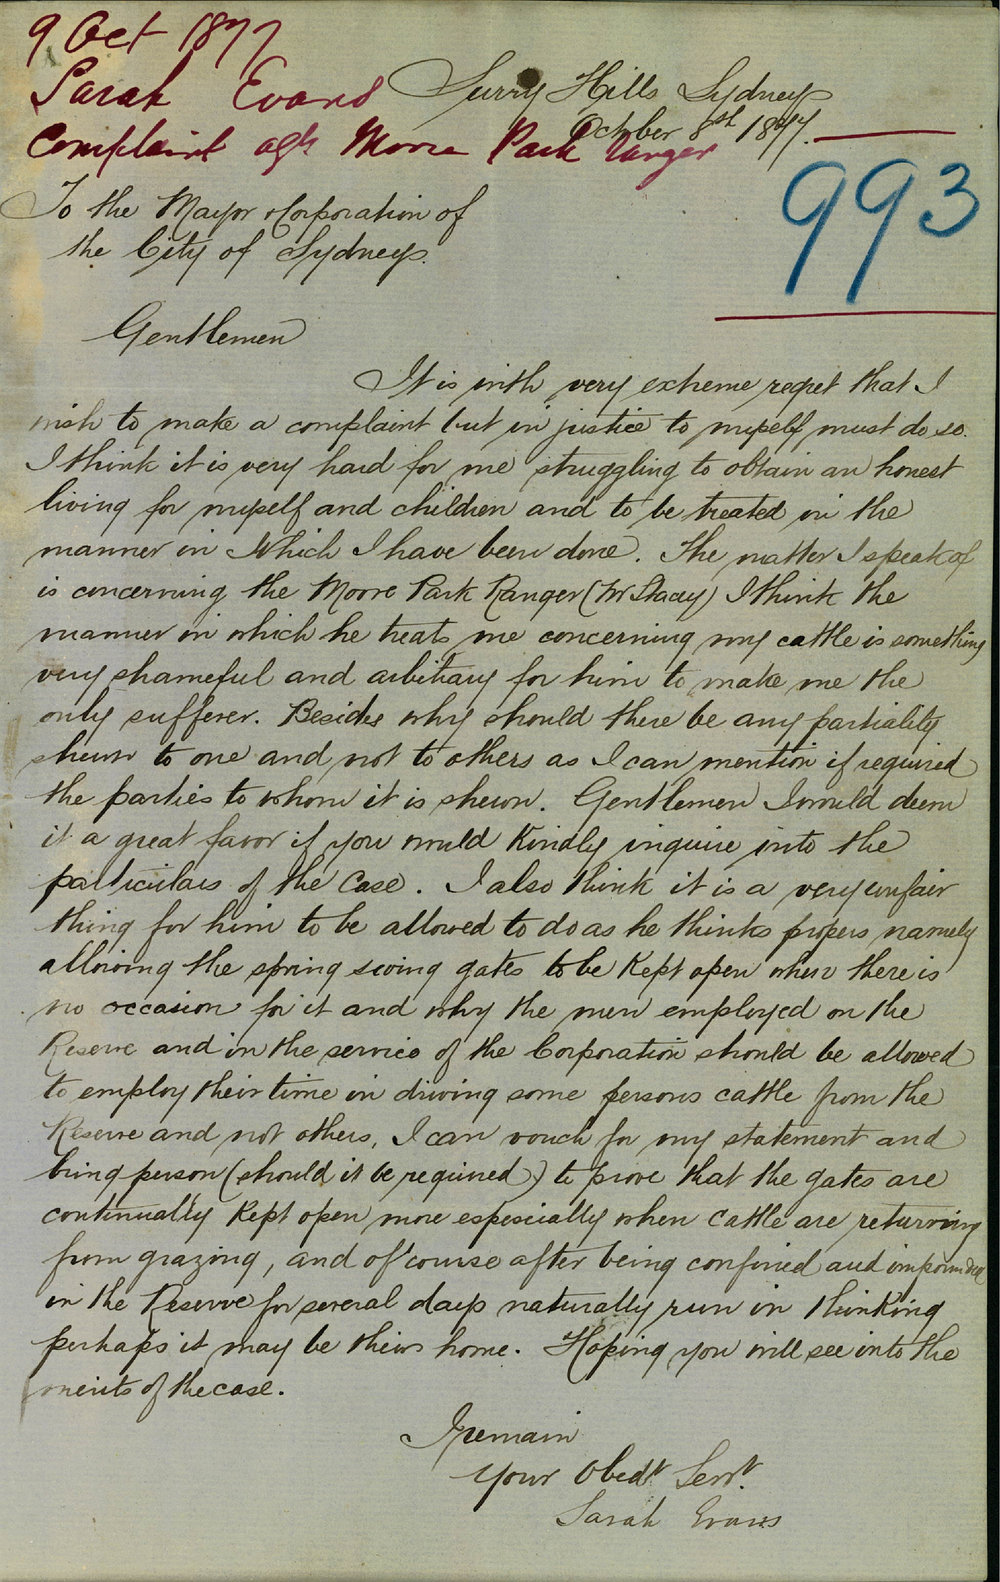 9 Oct 1877
Sarah Evans
Complaint agst Moore Park Ranger
Surry Hills Sydney
October 8st 1877.
993
To the Mayor & Corporation of
the City of Sydney.
Gentlemen
It is with very extreme regret that I
wish to make a complaint but in justice to myself must do so.
I think it is very hard for me struggling to obtain an honest
living for myself and children and to be treated in the
manner in which I have been done. The matter I speak of
is concerning the Moore Park Ranger (Mr Stacey) I think the
manner in which he treats me concerning my cattle is something
very shameful and arbitiary for him to make me the
only sufferer. Besides why should there be any partiality
shewn to one and not to others as I can mention if required
the parties to whom it is shewn. Gentlemen I would deem
it a great favor if you would Kindly inquire into the
particulars of the Case. I also think it is a very unfair
thing for him to be allowed to do as he thinks propers namely
allowing the spring swing gates to be Kept open when there is
no occasion for it and why the men employed on the
Reserve and in the service of the Corporation should be allowed
to employ their time in driving some persons cattle from the
Reserve and not others, I can vouch for my statement and
bring person (should it be required) to prove that the gates are
continually Kept open more especially when Cattle are returning
from grazing, and of course after being confined and impounded
in the Reserve for several days naturally run in thinking
perhaps it may be their home. Hoping you will see into the
merits of the case.
I remain
Your Obedt Servt.
Sarah Evans